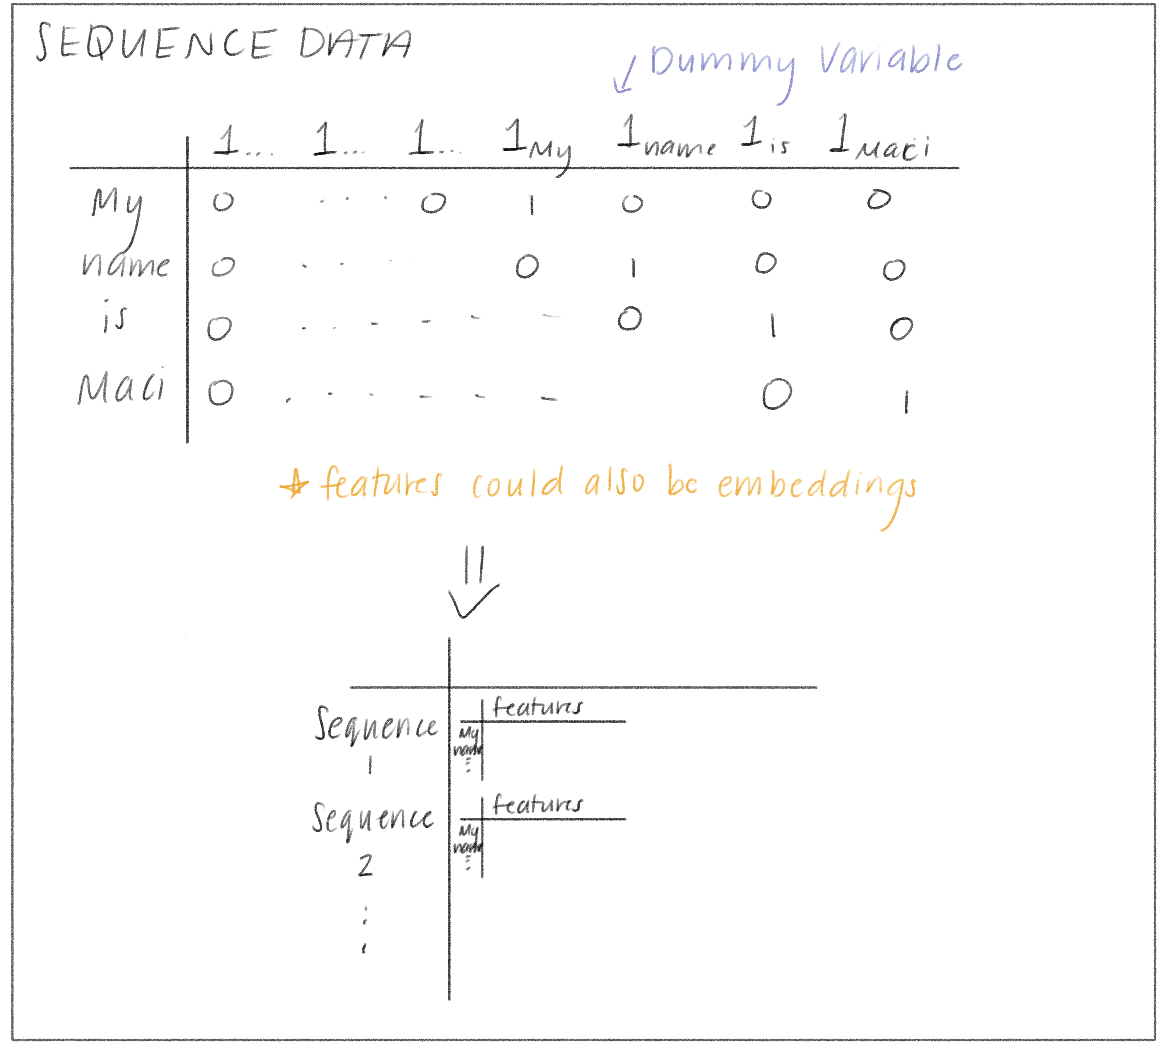 SEQUENCE DATA
↓ Dummy Variable
1... 1... 1... 1My 1name 1is 1Maci
My 0 . . . 0 1 0 0 0
name 0 . . . 0 1 0 0
is 0 . . - - - - 0 1 0
Maci 0 . . . - - - 0 1
★ features could also be embeddings
features
Sequence My
name
1 ⋮
features
Sequence My
name
2 ⋮
⋮